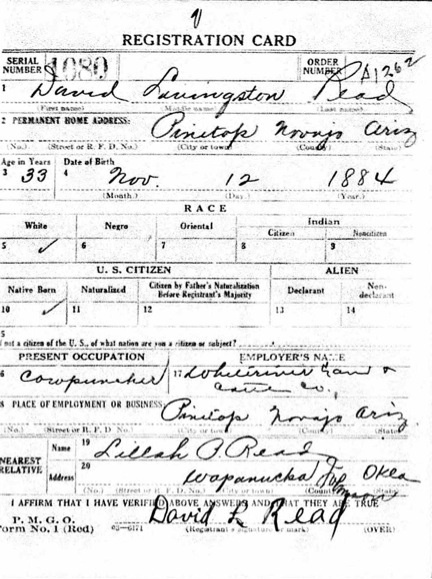 REGISTRATION CARD
SERIAL NUMBER 1080 ORDER NUMBER A1262
1 David Livingston Read
(First name) (Middle name) (Last name)
2 PERMANENT HOME ADDRESS:
Pinetop Navajo Ariz
(No.) (Street or R. F. D. No.) (City or town) (County) (State)
Age in Years Date of Birth
3 33 4 Nov. 12 1884
(Month.) (Day.) (Year.)
RACE
White Negro Oriental Indian
Citizen Noncitizen
5 ✓ 6 7 8 9
U. S. CITIZEN ALIEN
Native Born Naturalized Citizen by Father's Naturalization Before Registrant's Majority Declarant Non-declarant
10 ✓ 11 12 13 14
15
not a citizen of the U. S., of what nation are you a citizen or subject?
PRESENT OCCUPATION EMPLOYER'S NAME
6 Cowpuncher 17 &
Cattle Co.
8 PLACE OF EMPLOYMENT OR BUSINESS:
Pinetop Navajo Ariz
(No.) (Street or R. F. D. No.) (City or town) (County) (State)
NEAREST RELATIVE Name 19 Lillah P. Read
Address 20 Wapanucka Okla
(No.) (Street or R. F. D. No.) (City or town) (County) (State)
I AFFIRM THAT I HAVE VERIFIED ABOVE ANSWERS AND THAT THEY ARE TRUE
P. M. G. O.
Form No. 1 (Red) 03—6171 David L Read
(Registrant's signature or mark) (OVER)